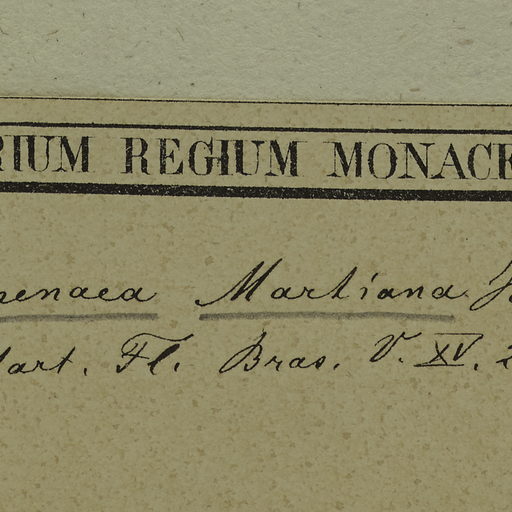 RIUM REGIUM MONACE
enaea Martiana
art. Fl. Bras. V. XV. 2